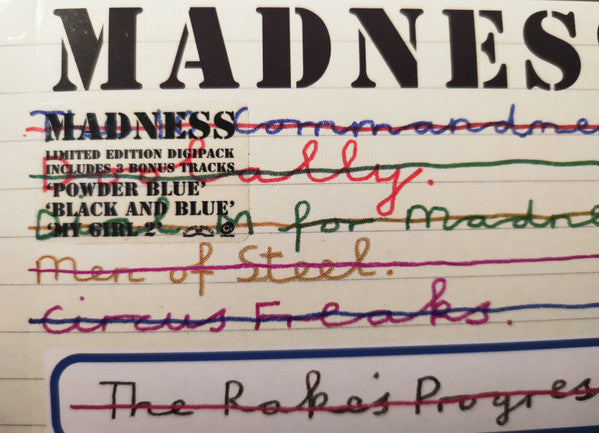 MADNES
Commandme
MADNESS
LIMITED EDITION DIGIPACK
INCLUDES 3 BONUS TRACKS
'POWDER BLUE'
'BLACK AND BLUE'
'MY GIRL 2'
ally.
Dial M for Madne
Men of Steel.
Circus Freaks.
The Rake's Progres